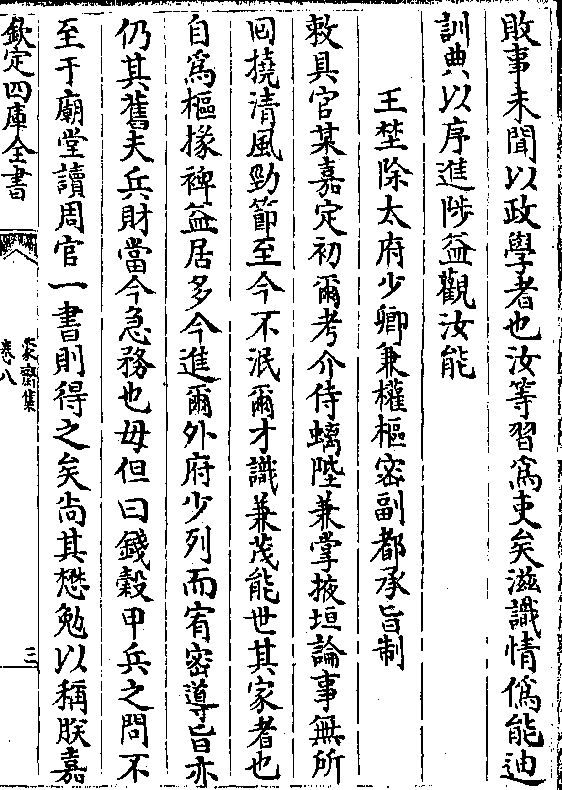 敗事未聞以政學者也汝等習為吏矣滋識情偽能迪
訓典以序進陟益觀汝能
王埜除太府少卿兼權樞密副都承旨制
敕具官某嘉定初爾考介侍螭陛兼掌掖垣論事無所
回撓清風勁節至今不泯爾才識兼茂能世其家者也
自為樞掾裨益居多今進爾外府少列而宥密導旨亦
仍其舊夫兵財當今急務也毋但曰錢穀甲兵之問不
至于廟堂讀周官一書則得之矣尚其懋勉以稱朕嘉
欽定四庫全書
蒙齋集
卷八
三